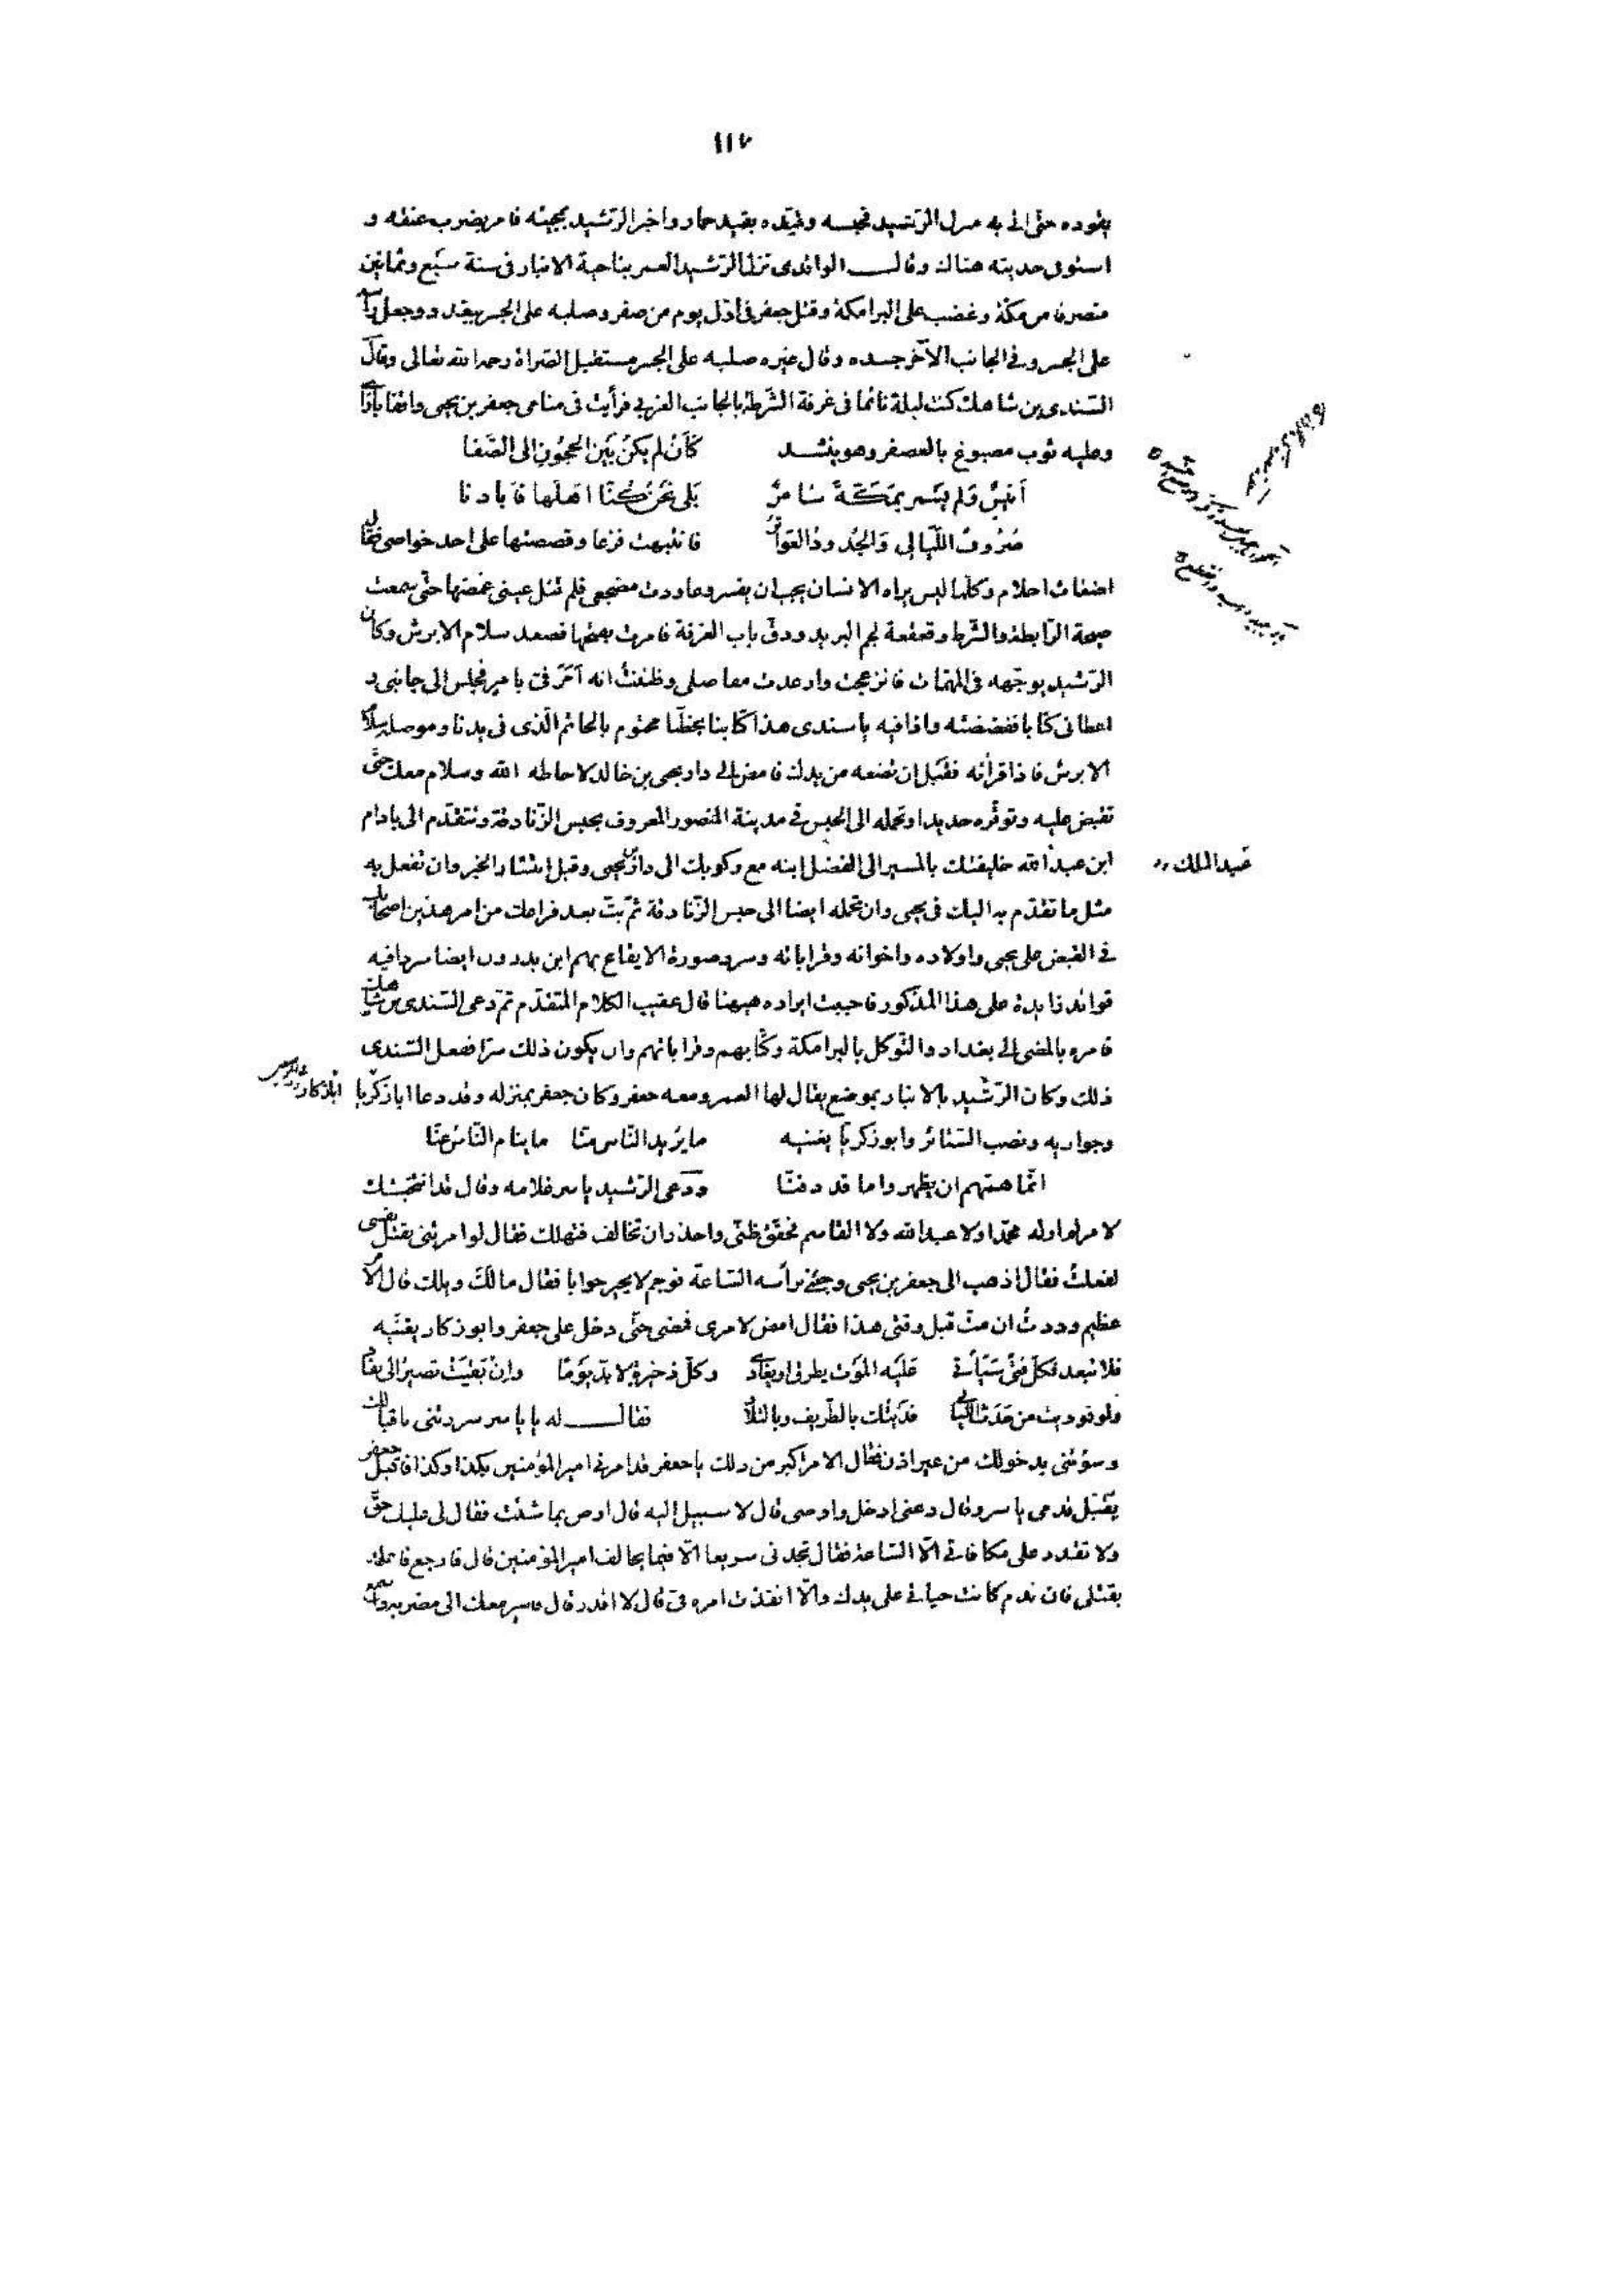 ١١٧
يقوده حتى اتى به منزل الرشيد فحبسه وقيده بقيد حمار واخبر الرشيد بمجيئه فامر بضرب عنقه و
استوفى حديثه هناك وقال الواقدى نزل الرشيد العمر بناحية الانبار فى سنة سبع وثمانين
منصرفا من مكة وغضب على البرامكة وقتل جعفر فى اول يوم من صفر وصلبه على الجسر ببغداد وجعل رأسه
على الجسر وفى الجانب الآخر جسده وقال غيره صلبه على الجسر مستقبل الصراة رحمه الله تعالى وقال
السندى بن شاهك كنت ليلة نائما فى غرفة الشرطة بالجانب الغربى فرأيت فى منامى جعفر بن يحيى واقفا بازائى
وعليه ثوب مصبوغ بالعصفر وهو ينشد كَأَنْ لم يكُن بَين الحجُونِ الى الصَّفا
أنيسٌ وَلم يَسمر بمَكَّةَ سَامرٌ بَلى نحَن كُنّا اهَلَها فَابادنا
صُرُوفُ اللَّيالِى وَالجُدودُ العَواثرُ فانتبهت فزعا وقصصتها على احد خواصى فقال
اضغاث احلام وكلما ليس يراه الانسان يجب ان يفسر وعاودت مضجعى فلم تنل عينى غمضها حتى سمعت
صيحة الرابطة والشرط وقعقعة لجم البريد ودق باب الغرفة فامرت بفتحها فصعد سلام الابرش وكان
الرشيد يوجهه فى المهمات فانزعجت وارعدت مفاصلى وظننت انه اَمَر فىَّ بامر فجلس الى جانبى و
اعطانى كتابا ففضضته واذا فيه يا سندى هذا كتابنا بخطنا مختوم بالخاتم الذى فى يدنا وموصله سلام
الابرش فاذا قرأته فقبل ان تضعه من يدك فامض الى دار يحيى بن خالد لا حاطه الله وسلام معك حتى
تقبض عليه وتوقره حديدا وتحمله الى الحبس فى مدينة المنصور المعروف بحبس الزنادقة وتتقدم الى بادام
ابن عبد الله خليفتك بالمسير الى الفضل ابنه مع ركوبك الى دار يحيى وقبل انتشار الخبر وان تفعل به
عبد الملك
مثل ما تقدم به اليك فى يحيى وان تحمله ايضا الى حبس الزنادقة ثم بث بعد فراغك من امر هذين اصحابك
فى القبض على يحيى واولاده واخوانه وقراباته وسرد صورة الايقاع بهم ابن بدرون ايضا سردا فيه
فوائد زايدة على هذا المذكور فاحببت ايراده ههنا قال عقيب الكلام المتقدم ثم دعى السندى بن شاهك
فامره بالمضى الى بغداد والتوكل بالبرامكة وكتابهم وقراباتهم وان يكون ذلك سرا ففعل السندى
ذلك وكان الرشيد بالانبار بموضع يقال لها العمر ومعه جعفر وكان جعفر بمنزله وقد دعا ابا زكريا
وجواريه ونصب الستائر وابو زكريا يغنيه ما يُريد النّاس منّا ما ينام النّاسُ عنّا
انّما همّهم ان يظهروا ما قد دفنّا ودعى الرشيد ياسر غلامه وقال قد انتخبتك
لامر لم اره له محمّدا ولا عبد الله ولا القاسم فحقّق ظنّى واحذر ان تخالف فتهلك فقال لو امرتنى بقتل نفسى
لفعلتُ فقال اذهب الى جعفر بن يحيى وجئنى برأسه السّاعة فوجم لا يحير جوابا فقال مالَكَ ويلك قال الامر
عظيم وددتُ ان متّ قبل وقتى هذا فقال امض لامرى فمضى حتّى دخل على جعفر وابو زكار يغنّيه
فلا تبعد فكلّ فتىً سَيَأتى عَلَيه المَوَت يطرق او يغادى وكلّ ذخيرة لا بدّ يَومًا وانْ بَقيَتْ تصيرُ الى نفاد
ولو فوديت من حَدَث الليالى فدَيتُك بالطّريف وبالتلاد فقال له يا ياسر سررتنى باقبالك
وسؤتنى بدخولك من غير اذن فقال الامر اكبر من ذلك يا جعفر قد امرنى امير المؤمنين بكذا وكذا فاقبل جعفر
يقبّل قدمى ياسر وقال دعنى ادخل واوصى قال لا سبيل اليه قال اوص بما شئت فقال لى عليك حقّ
ولا تقدر على مكافاتى الّا السّاعة فقال تجدنى سريعا الّا فيما يخالف امير المؤمنين قال فارجع فاعلمه
بقتلى فان ندم كانت حياتى على يدك والّا انفذت امره فىّ قال لا اقدر قال فاسير معك الى مضربه